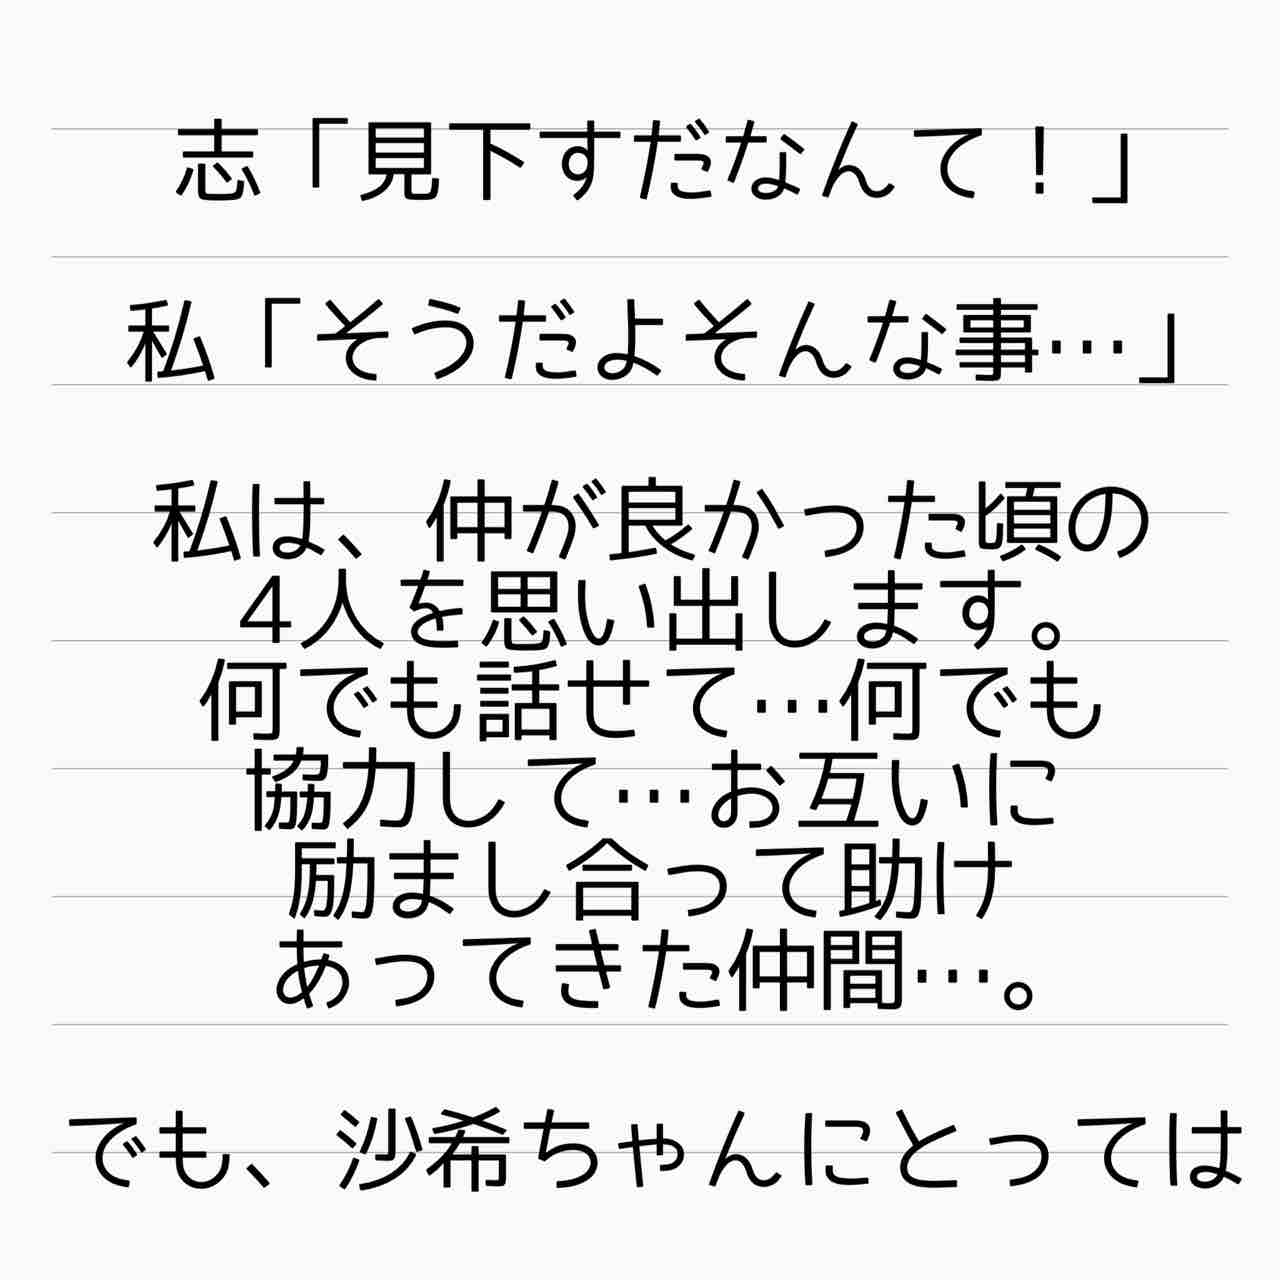 志「見下すだなんて！」
私「そうだよそんな事…」
私は、仲が良かった頃の
4人を思い出します。
何でも話せて…何でも
協力して…お互いに
励まし合って助け
あってきた仲間…。
でも、沙希ちゃんにとっては